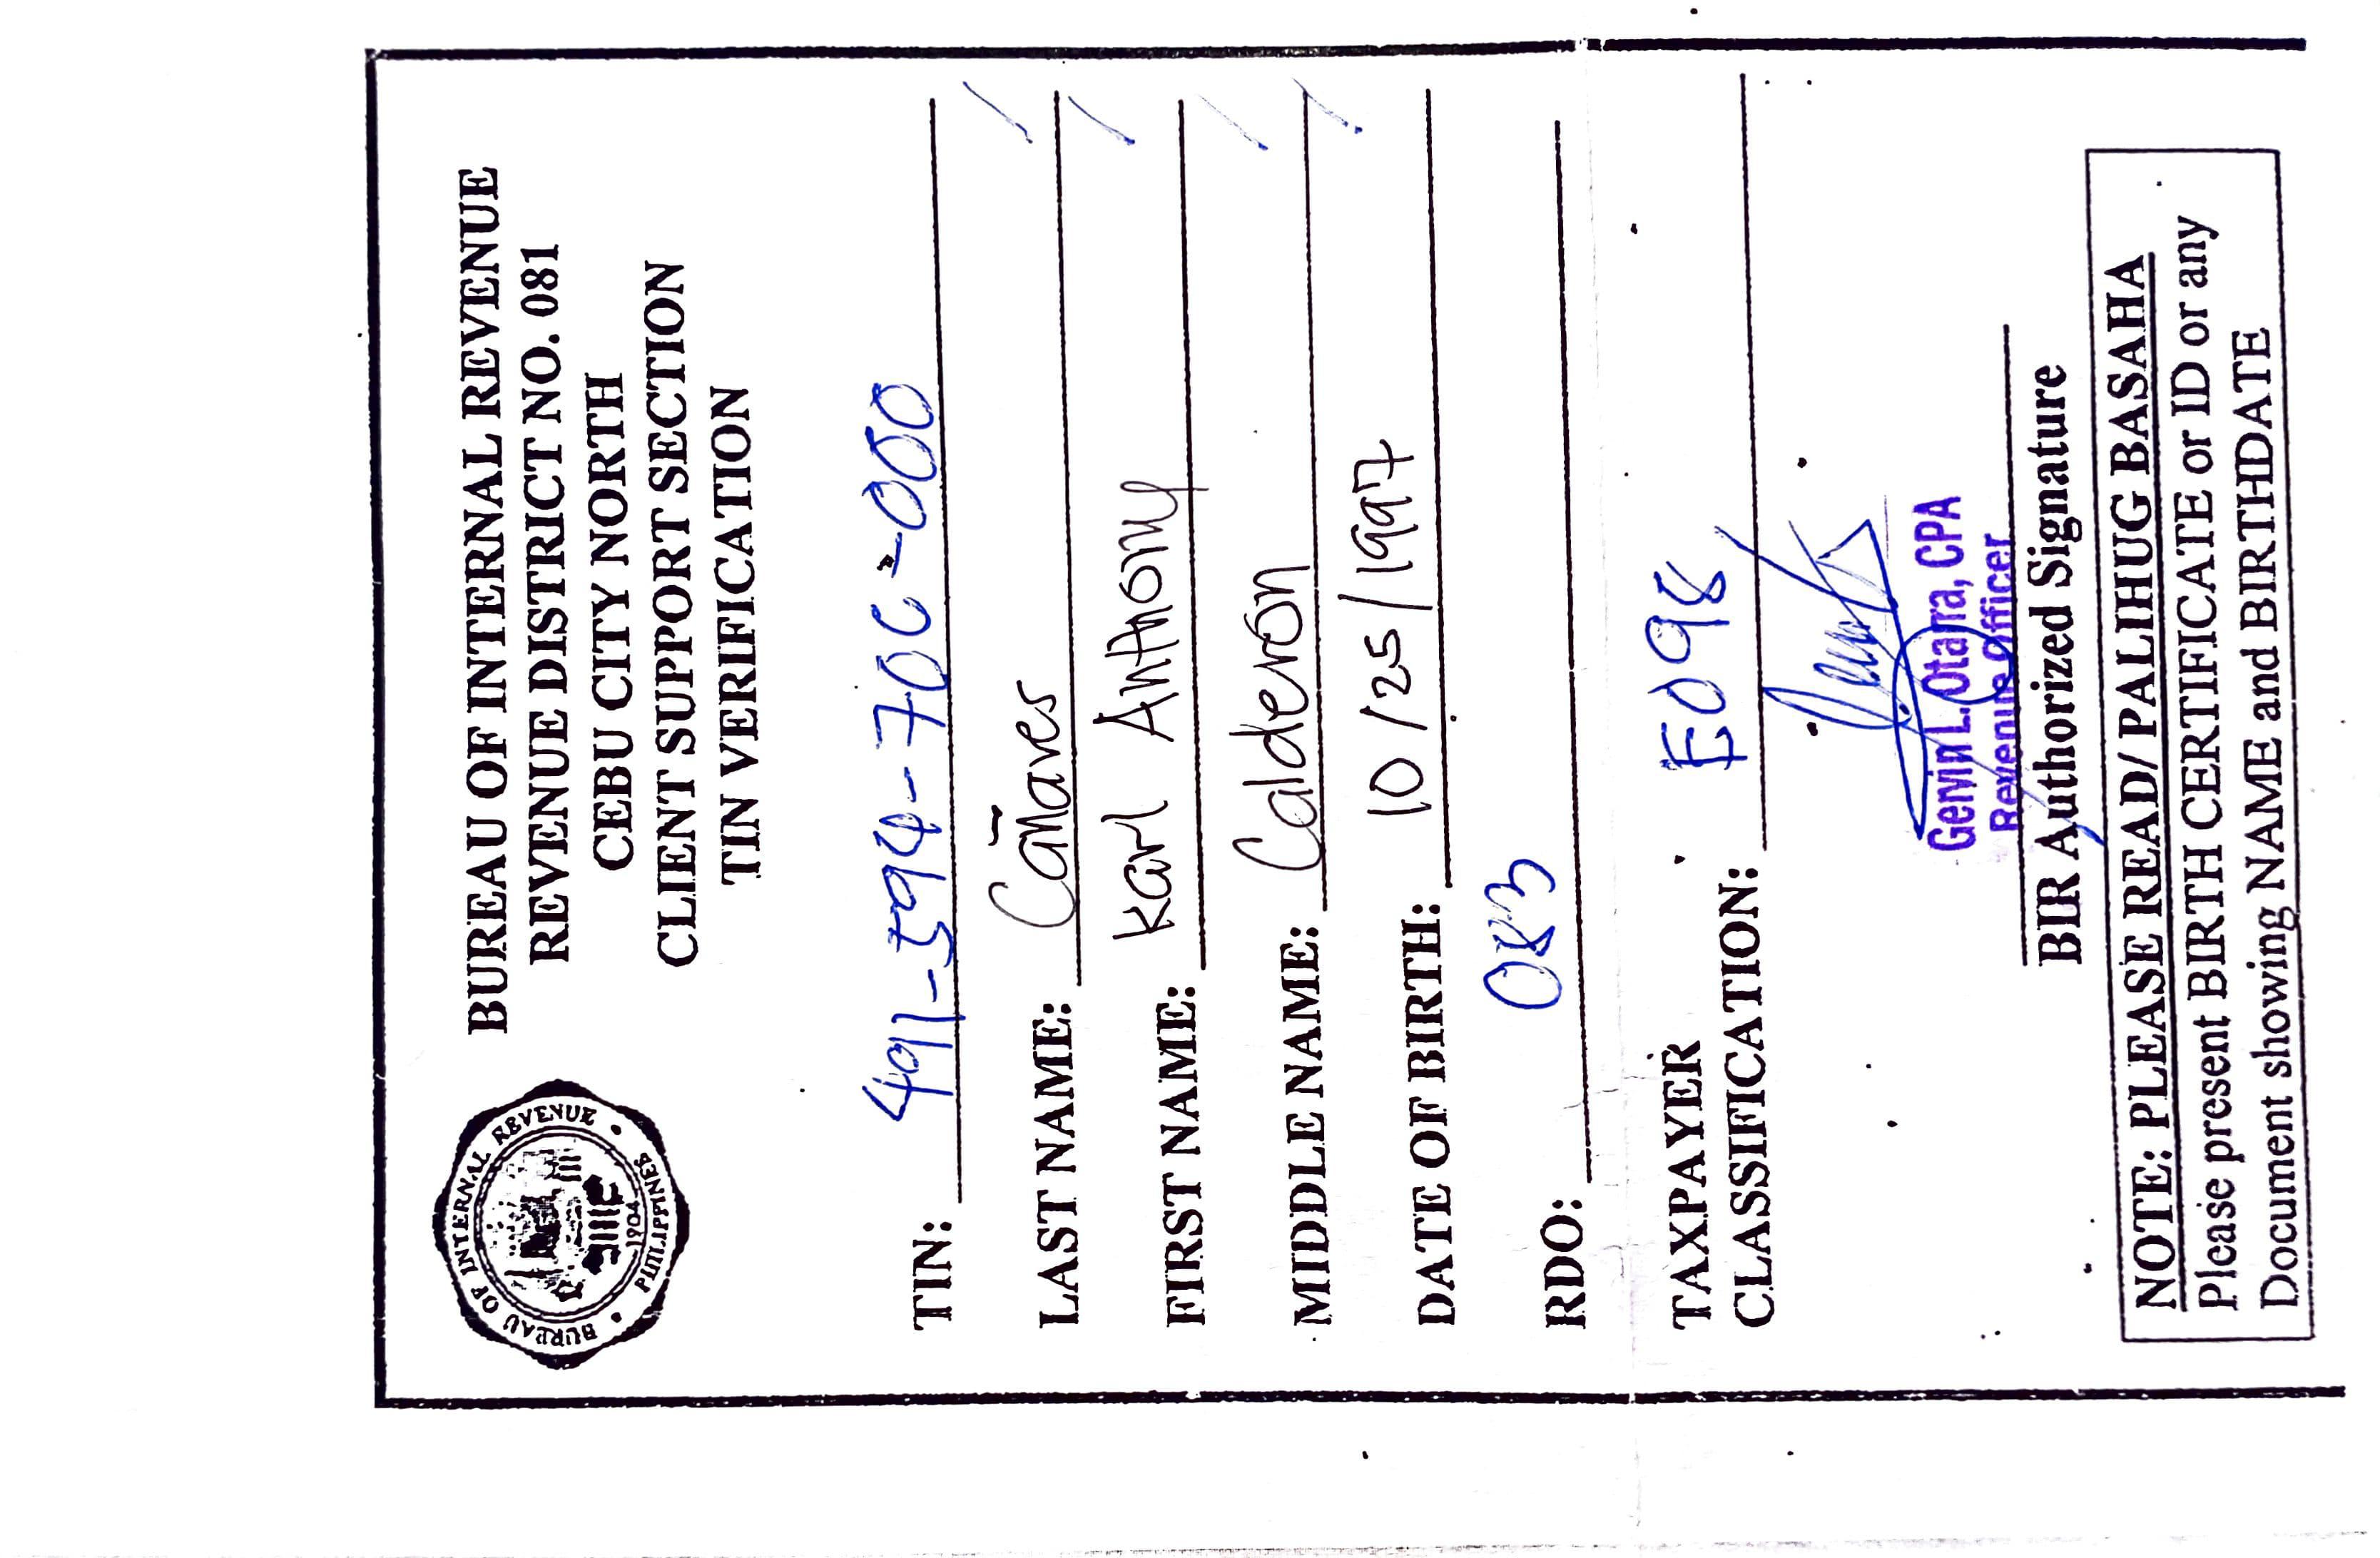 BUREAU OF INTERNAL REVENUE
REVENUE DISTRICT NO. 081
CEBU CITY NORTH
CLIENT SUPPORT SECTION
TIN VERIFICATION
BUREAU OF INTERNAL REVENUE
PHILIPPINES
1904
TIN: 491-594-700-000
LAST NAME: Cañares
FIRST NAME: Karl Anthony
MIDDLE NAME: Calderon
DATE OF BIRTH: 10/25/1997
RDO: 083
TAXPAYER
CLASSIFICATION: E098
Gervin L. Otarra, CPA
Revenue Officer
BIR Authorized Signature
NOTE: PLEASE READ/PALIHUG BASAHA
Please present BIRTH CERTIFICATE or ID or any
Document showing NAME and BIRTHDATE